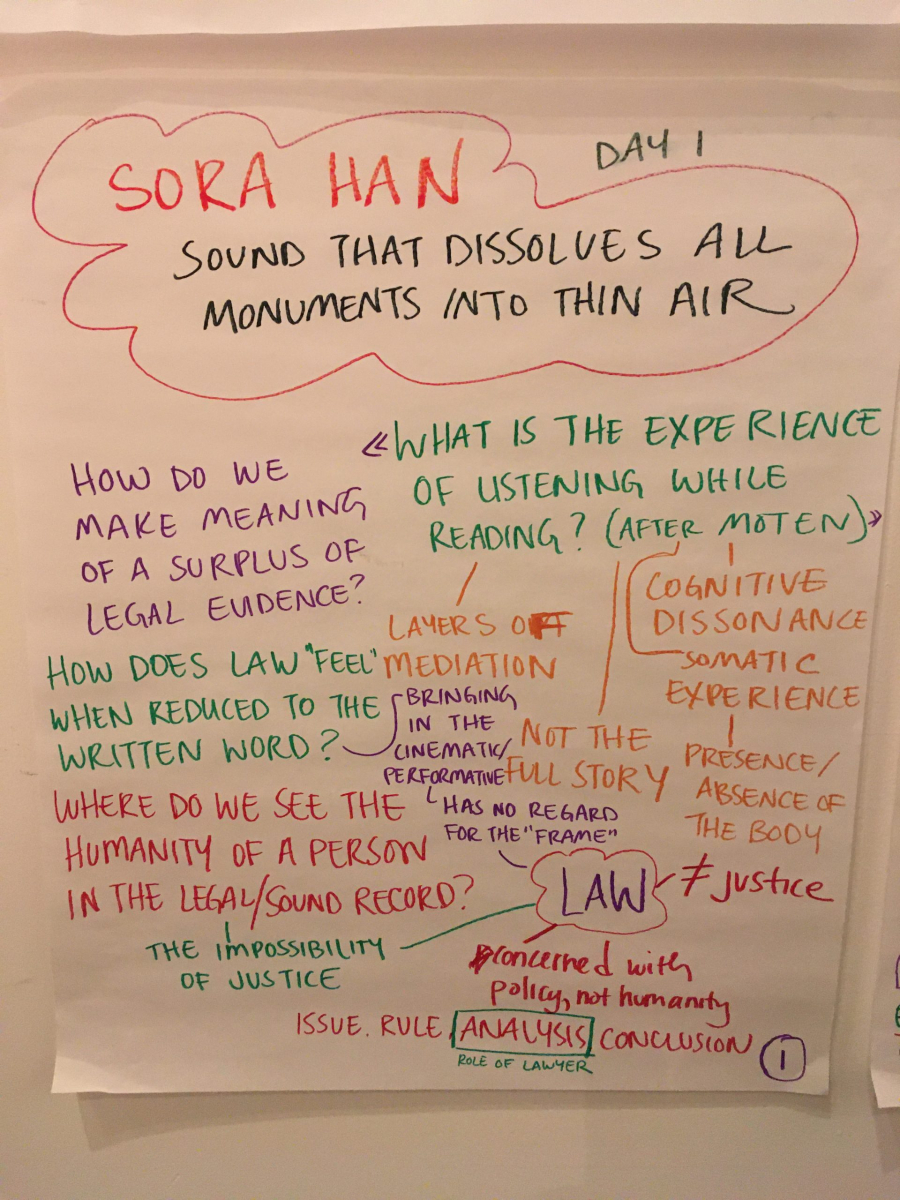 SORA HAN
DAY 1
SOUND THAT DISSOLVES ALL
MONUMENTS INTO THIN AIR
HOW DO WE
MAKE MEANING
OF A SURPLUS OF
LEGAL EVIDENCE?
«WHAT IS THE EXPERIENCE
OF LISTENING WHILE
READING? (AFTER MOTEN)»
LAYERS OF
MEDIATION
NOT THE
FULL STORY
COGNITIVE
DISSONANCE
SOMATIC
EXPERIENCE
PRESENCE/
ABSENCE OF
THE BODY
HOW DOES LAW "FEEL"
WHEN REDUCED TO THE
WRITTEN WORD?
BRINGING
IN THE
CINEMATIC/
PERFORMATIVE
HAS NO REGARD
FOR THE "FRAME"
WHERE DO WE SEE THE
HUMANITY OF A PERSON
IN THE LEGAL/SOUND RECORD?
THE IMPOSSIBILITY
OF JUSTICE
LAW
≠ justice
concerned with
policy, not humanity
ISSUE. RULE. ANALYSIS. CONCLUSION
ROLE OF LAWYER
1